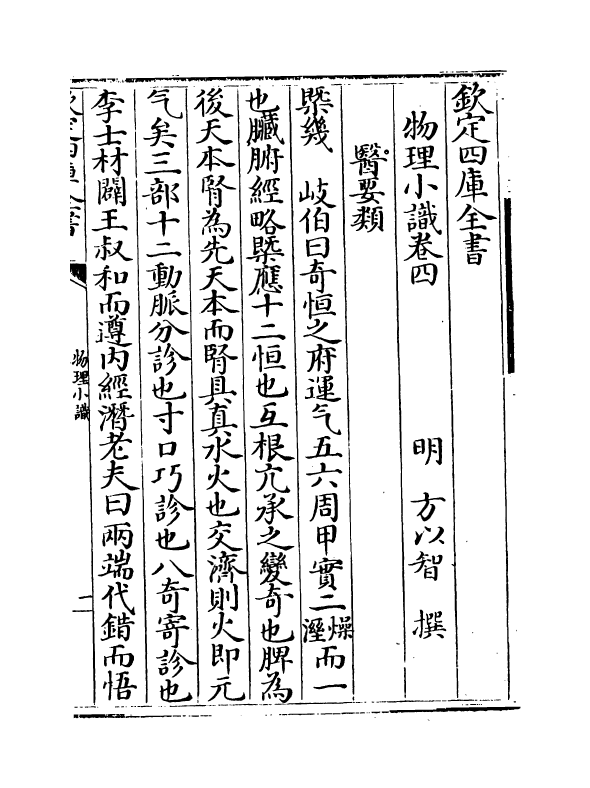 欽定四庫全書
物理小識卷四
明 方以智 撰
醫要類
槩幾 岐伯曰奇恒之府運气五六周甲實二燥溼而一
也臟腑經略槩應十二恒也互根亢承之變奇也脾為
後天本腎為先天本而腎具真水火也交濟則火即元
气矣三部十二動脈分診也寸口巧診也八奇寄診也
李士材闢王叔和而遵内經潛老夫曰兩端代錯而悟
物理小識